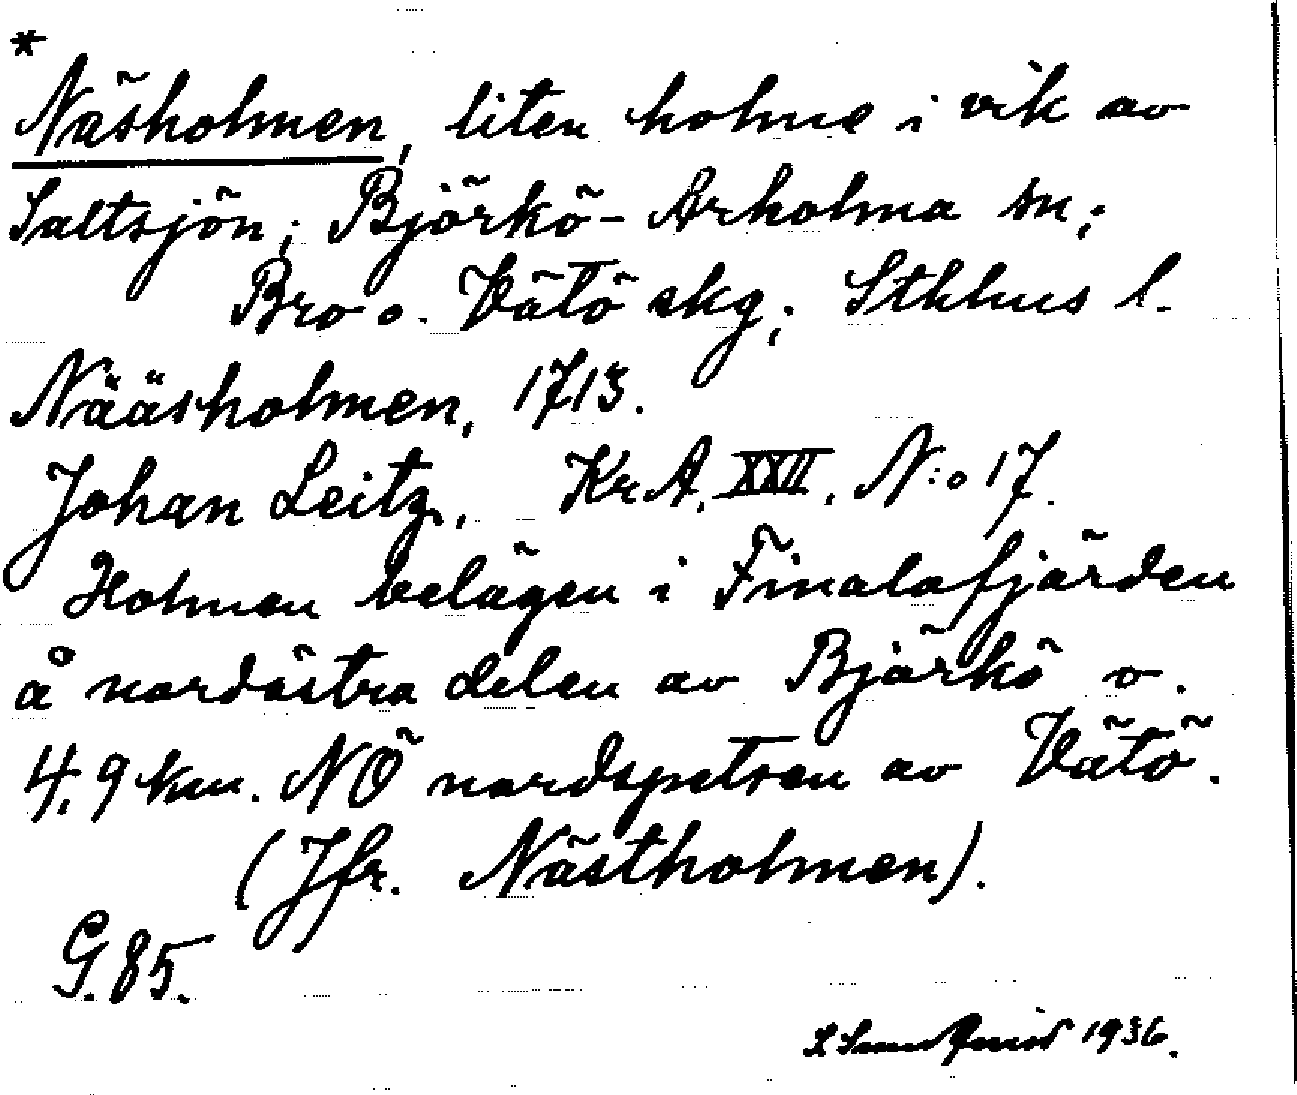 *
Näsholmen, liten holme i vik av
Saltsjön; Björkö-Arholma sn;
Bro o. Vätö skg; Sthlms l.
Nääsholmen, 1713.
Johan Leitz, KrA, XXII, N:o 17.
Holmen belägen i Finalafjärden
å nordöstra delen av Björkö o.
4,9 km. NÖ nordspetsen av Vätö.
(Jfr. Nästholmen).
G. 85.
1936.